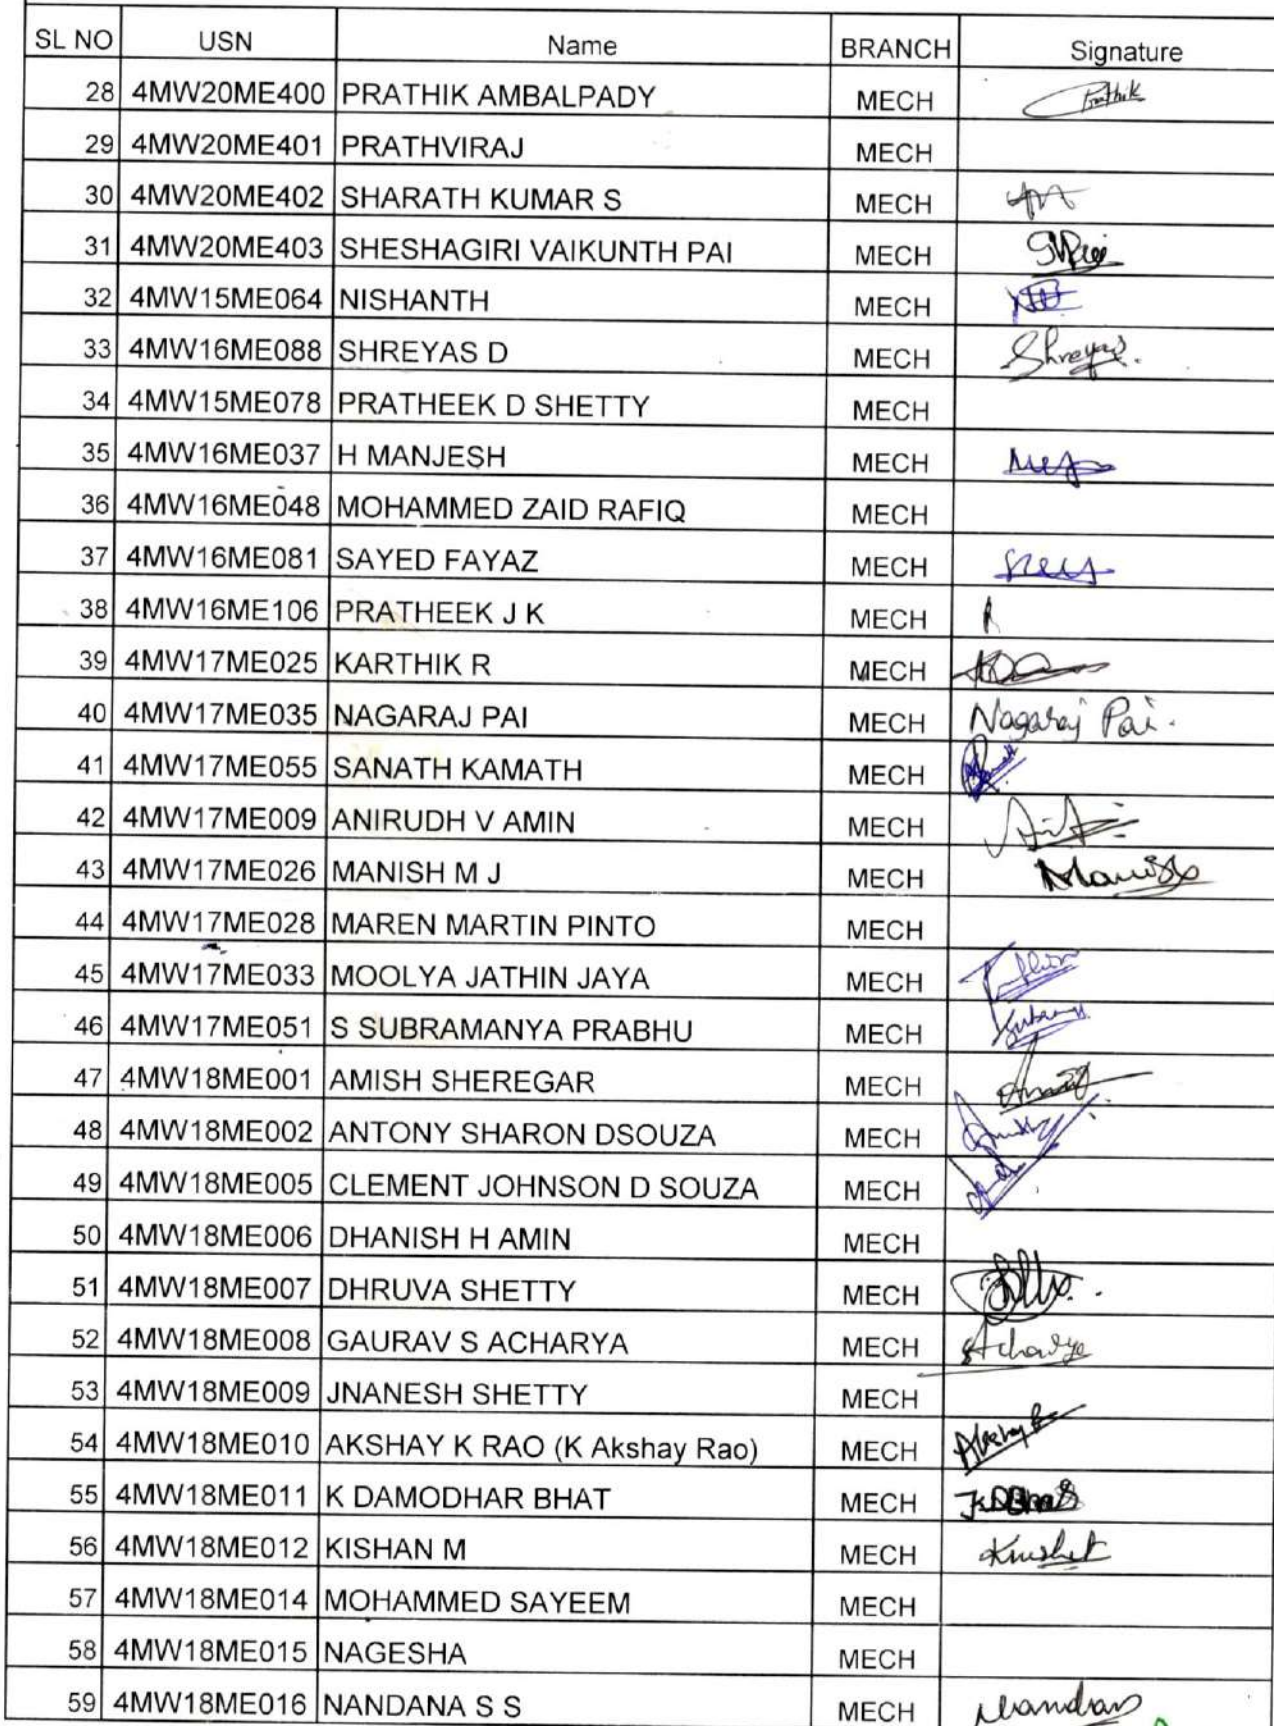 SL NO USN Name BRANCH Signature
28 4MW20ME400 PRATHIK AMBALPADY MECH Prathik
29 4MW20ME401 PRATHVIRAJ MECH
30 4MW20ME402 SHARATH KUMAR S MECH
31 4MW20ME403 SHESHAGIRI VAIKUNTH PAI MECH SVPai
32 4MW15ME064 NISHANTH MECH
33 4MW16ME088 SHREYAS D MECH Shreyas.
34 4MW15ME078 PRATHEEK D SHETTY MECH
35 4MW16ME037 H MANJESH MECH
36 4MW16ME048 MOHAMMED ZAID RAFIQ MECH
37 4MW16ME081 SAYED FAYAZ MECH
38 4MW16ME106 PRATHEEK J K MECH
39 4MW17ME025 KARTHIK R MECH
40 4MW17ME035 NAGARAJ PAI MECH Nagaraj Pai.
41 4MW17ME055 SANATH KAMATH MECH
42 4MW17ME009 ANIRUDH V AMIN MECH
43 4MW17ME026 MANISH M J MECH Manish
44 4MW17ME028 MAREN MARTIN PINTO MECH
45 4MW17ME033 MOOLYA JATHIN JAYA MECH
46 4MW17ME051 S SUBRAMANYA PRABHU MECH
47 4MW18ME001 AMISH SHEREGAR MECH
48 4MW18ME002 ANTONY SHARON DSOUZA MECH
49 4MW18ME005 CLEMENT JOHNSON D SOUZA MECH
50 4MW18ME006 DHANISH H AMIN MECH
51 4MW18ME007 DHRUVA SHETTY MECH
52 4MW18ME008 GAURAV S ACHARYA MECH Acharya
53 4MW18ME009 JNANESH SHETTY MECH
54 4MW18ME010 AKSHAY K RAO (K Akshay Rao) MECH
55 4MW18ME011 K DAMODHAR BHAT MECH
56 4MW18ME012 KISHAN M MECH
57 4MW18ME014 MOHAMMED SAYEEM MECH
58 4MW18ME015 NAGESHA MECH
59 4MW18ME016 NANDANA S S MECH